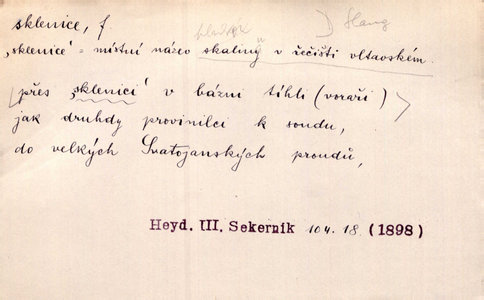 sklenice, f
Slang
„sklenice" = místní název skaliny v řečišti vltavském.
přes „sklenici" v bázni tihli (voraři)
jak druhdy provinilci k soudu,
do velkých Svatojanských proudů,
Heyd. III. Sekerník 104. 18. (1898)